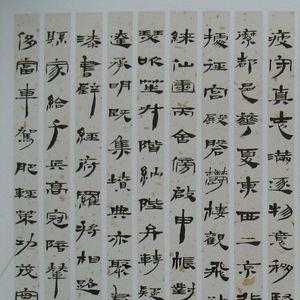 疲守真志滿逐物意移
縻都邑華夏東西二京背
據涇宮殿盤鬱樓觀飛
綵仙靈丙舍傍啟甲帳對
瑟吹笙升階納陛弁轉疑
達承明既集墳典亦聚
漆書壁經府羅將相路
縣家給千兵高冠陪輦
侈富車駕肥輕策功茂實